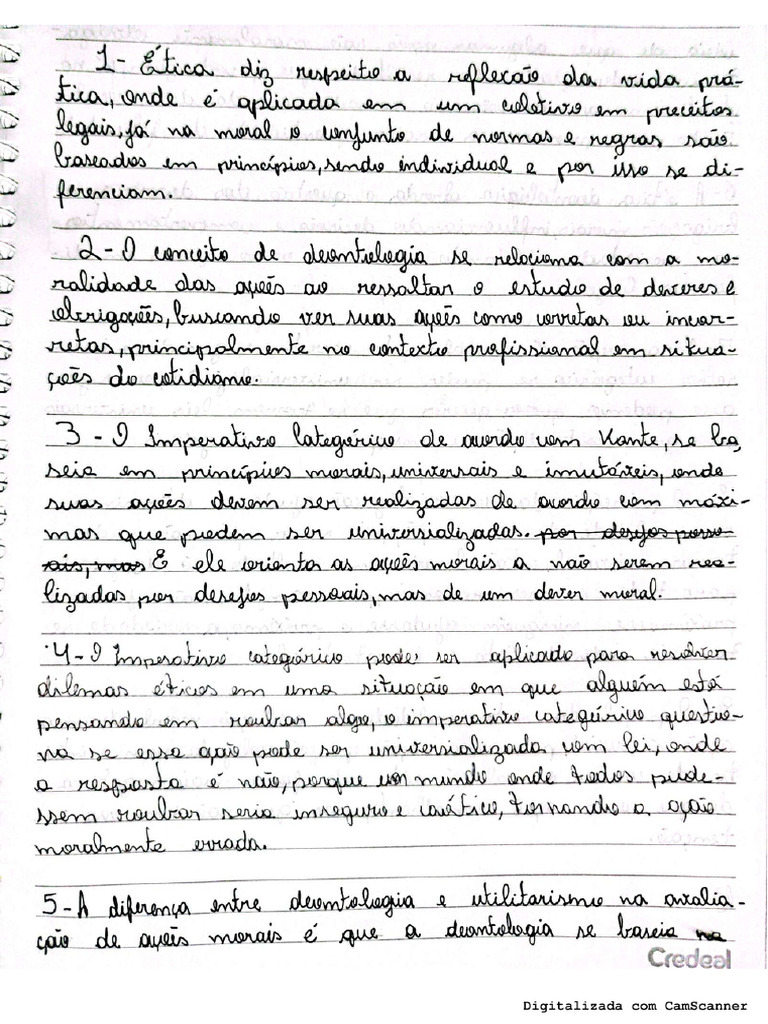 1- Ética diz respeito a reflexão da vida prá-
tica, onde é aplicada em um coletivo em preceitos
legais, já na moral o conjunto de normas e regras são
baseados em princípios, sendo individual e por isso se di-
ferenciam.
2- O conceito de deontologia se relaciona com a mo-
ralidade das ações ao ressaltar o estudo de deveres e
obrigações, buscando ver suas ações como corretas ou incor-
retas, principalmente no contexto profissional em situa-
ções do cotidiano.
3 - O Imperativo Categórico de acordo com Kante, se ba
seia em princípios morais, universais e imutáveis, onde
suas ações devem ser realizadas de acordo com máxi-
mas que podem ser universializadas. por desejos pesso-
ais, mas E ele orienta as ações morais a não serem rea-
lizadas por desejos pessoais, mas de um dever moral.
4- O Imperativo categórico pode ser aplicado para resolver
dilemas éticos em uma situação em que alguém está
pensando em roubar algo, o imperativo categórico questio-
na se essa ação pode ser universializada com lei, onde
a resposta é não, porque um mundo onde todos pudes-
ssem roubar seria inseguro e caótico, tornando a ação
moralmente errada.
5- A diferença entre deontologia e utilitarismo na avalia-
ção de ações morais é que a deontologia se baseia na
Credeal
Digitalizada com CamScanner